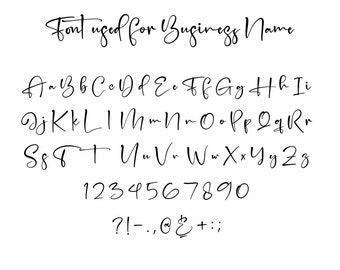 Font used for Business Name
A a B b C c D d E e F f G g H h I i
J j K k L l M m N n O o P p Q q R r
S s T t U u V v W w X x Y y Z z
1234567890
?!-.,@&+:;